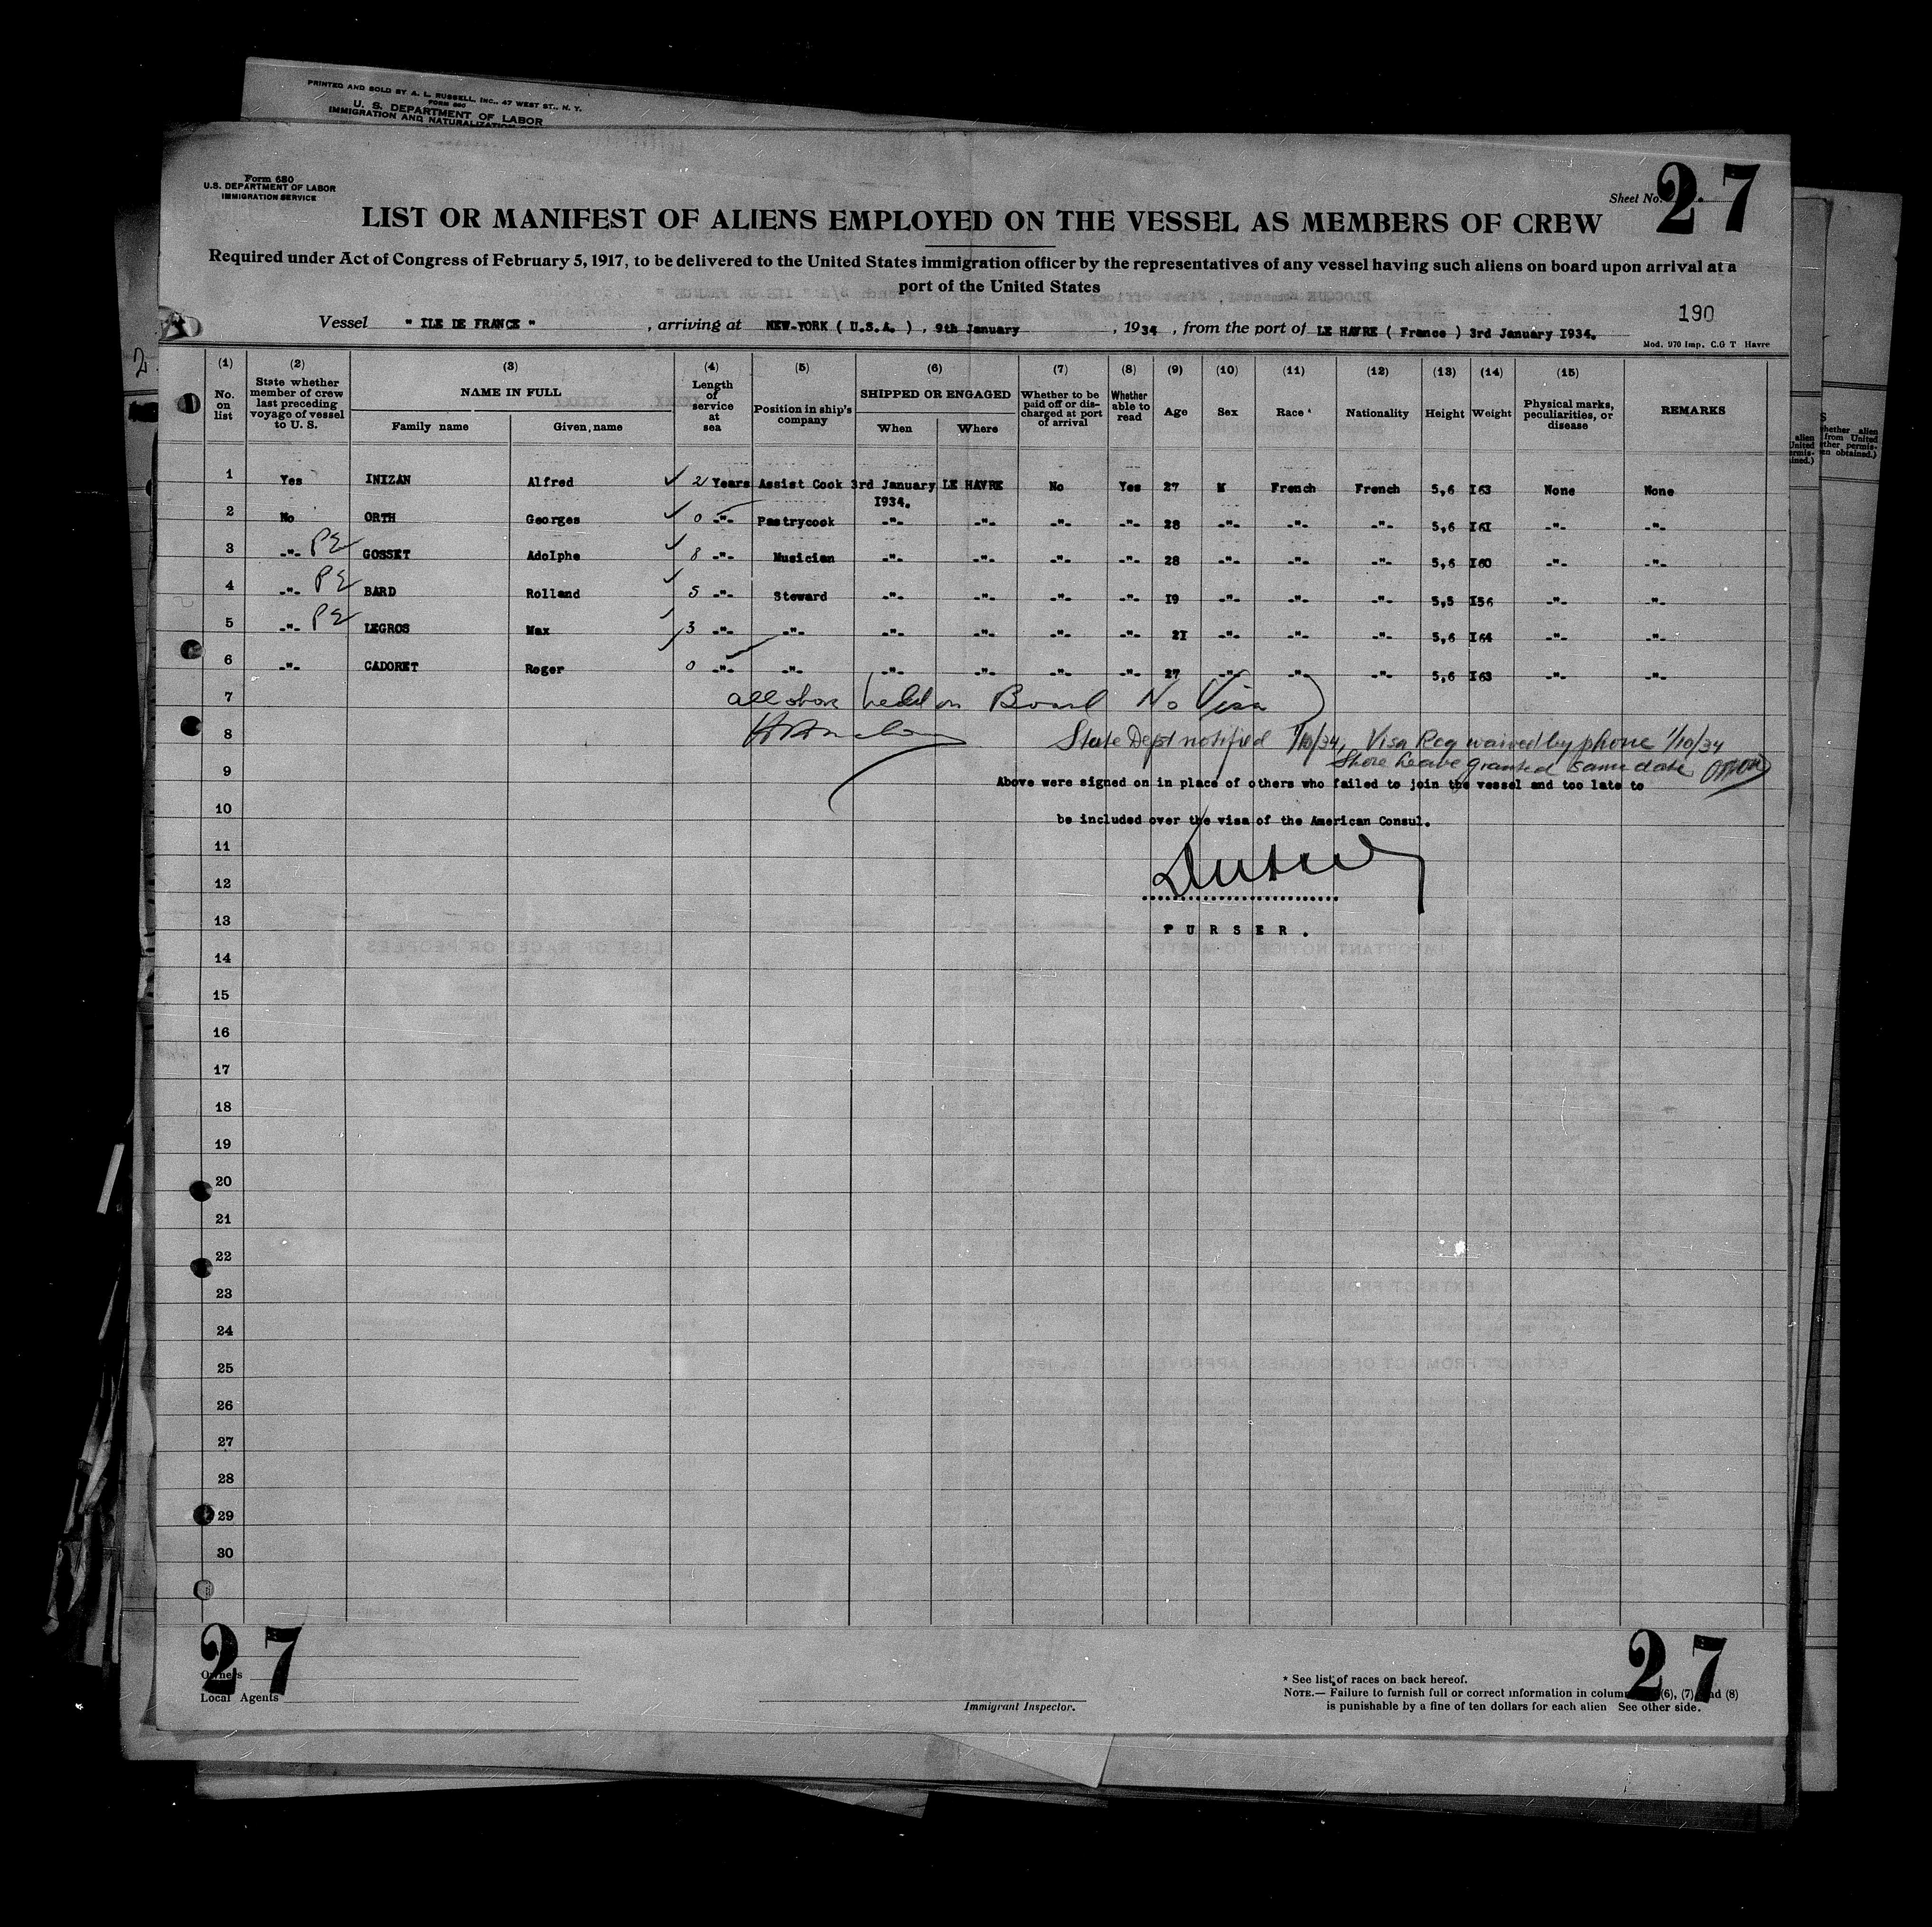 PRINTED AND SOLD BY A. L. RUSSELL, INC., 47 WEST ST., N. Y.
FORM 680
U. S. DEPARTMENT OF LABOR
IMMIGRATION AND NATURALIZATION
Form 680
U.S. DEPARTMENT OF LABOR
IMMIGRATION SERVICE
Sheet No. 27
LIST OR MANIFEST OF ALIENS EMPLOYED ON THE VESSEL AS MEMBERS OF CREW
Required under Act of Congress of February 5, 1917, to be delivered to the United States immigration officer by the representatives of any vessel having such aliens on board upon arrival at a
port of the United States
190
Vessel " ILE DE FRANCE " , arriving at NEW-YORK ( U.S.A. ) , 9th January , 1934 , from the port of LE HAVRE ( France ) 3rd January I934.
Mod. 970 Imp. C.G T Havre
(1) (2) (3) (4) (5) (6) (7) (8) (9) (10) (11) (12) (13) (14) (15)
No. on list State whether member of crew last preceding voyage of vessel to U. S. NAME IN FULL Length of service at sea Position in ship's company SHIPPED OR ENGAGED Whether to be paid off or discharged at port of arrival Whether able to read Age Sex Race * Nationality Height Weight Physical marks, peculiarities, or disease REMARKS
Family name Given, name When Where
1 Yes INIZAN Alfred 2 Years Assist Cook 3rd January I934. LE HAVRE No Yes 27 M French French 5,6 I63 None None
2 No ORTH Georges 0 -"- Pastrycook -"- -"- -"- -"- 28 -"- -"- -"- 5,6 I6I -"- -"-
3 -"- PE GOSSET Adolphe 8 -"- Musician -"- -"- -"- -"- 28 -"- -"- -"- 5,6 I60 -"- -"-
4 -"- PE BARD Rolland 5 -"- Steward -"- -"- -"- -"- I9 -"- -"- -"- 5,5 I56 -"- -"-
5 -"- PE LEGROS Max 3 -"- -"- -"- -"- -"- -"- 2I -"- -"- -"- 5,6 I64 -"- -"-
6 -"- CADORET Roger 0 -"- -"- -"- -"- -"- -"- 27 -"- -"- -"- 5,6 I63 -"- -"-
7 all above held on Board No Visa
8 State Dept notified 1/10/34, Visa Req waived by phone 1/10/34
Shore Leave granted same date
9 Above were signed on in place of others who failed to join the vessel and too late to
10 be included over the visa of the American Consul.
11
12
13 PURSER.
14
15
16
17
18
19
20
21
22
23
24
25
26
27
28
29
30
27 27
Owners
Local Agents
Immigrant Inspector.
* See list of races on back hereof.
NOTE.— Failure to furnish full or correct information in colum (6), (7) and (8)
is punishable by a fine of ten dollars for each alien See other side.